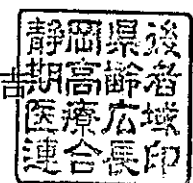 吉
静岡県後
期高齢者
医療広域
連合長印